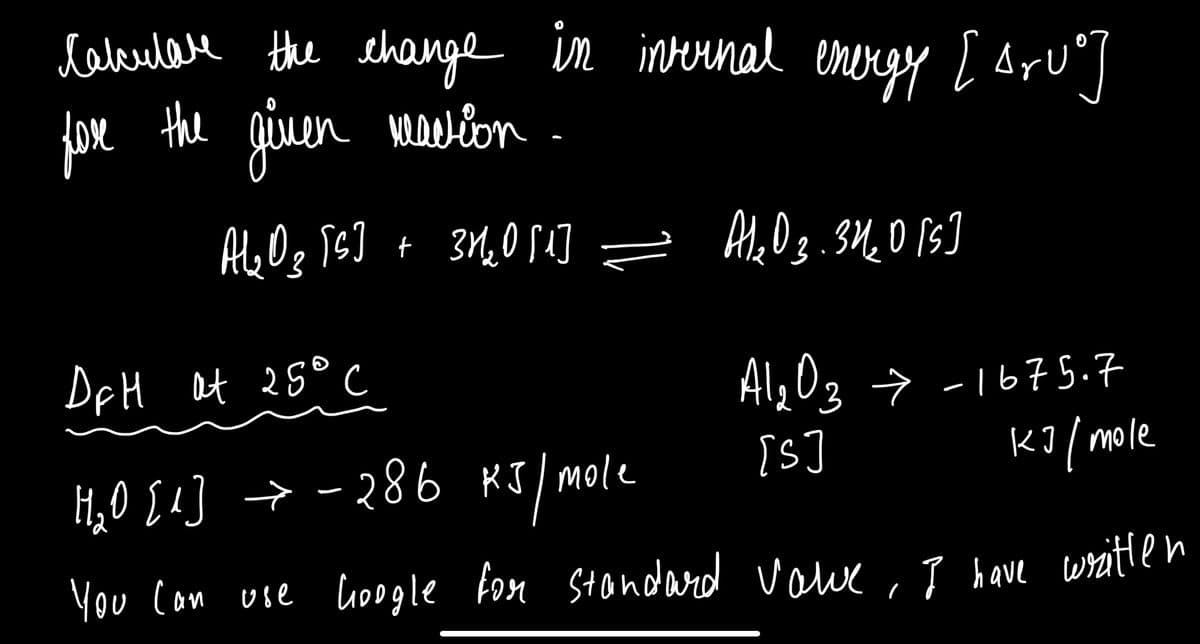 Calculate the change in internal energy [ΔrU°]
for the given reaction.
Al₂O₃ [s] + 3H₂O [l] ⇌ Al₂O₃.3H₂O [s]
DfH at 25°C
Al₂O₃ → -1675.7
[s] KJ/mole
H₂O [l] → -286 KJ/mole
You can use Google for standard value, I have written